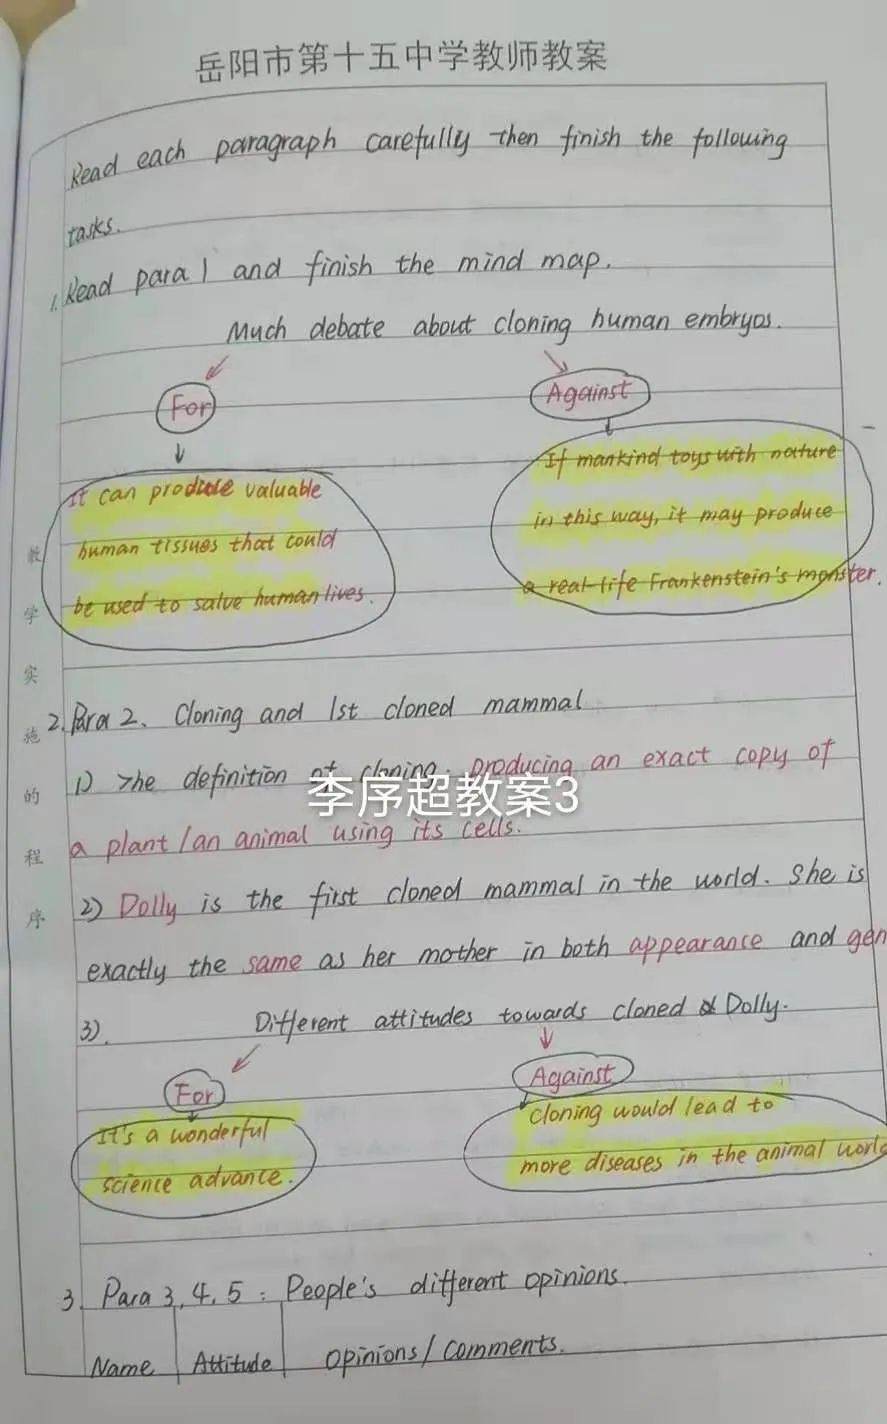 岳阳市第十五中学教师教案
Read each paragraph carefully then finish the following
tasks.
1. Read para 1 and finish the mind map.
Much debate about cloning human embryos.
For
Against
It can produce valuable
human tissues that could
be used to salve human lives.
If mankind toys with nature
in this way, it may produce
a real-life Frankenstein's monster.
教学实施的程序
2. Para 2. Cloning and 1st cloned mammal
1) The definition of cloning: producing an exact copy of
a plant / an animal using its cells.
李序超教案3
2) Dolly is the first cloned mammal in the world. She is
exactly the same as her mother in both appearance and gen
3). Different attitudes towards cloned Dolly.
For
Against
It's a wonderful
science advance.
cloning would lead to
more diseases in the animal world
3. Para 3, 4, 5: People's different opinions.
Name Attitude Opinions / Comments.